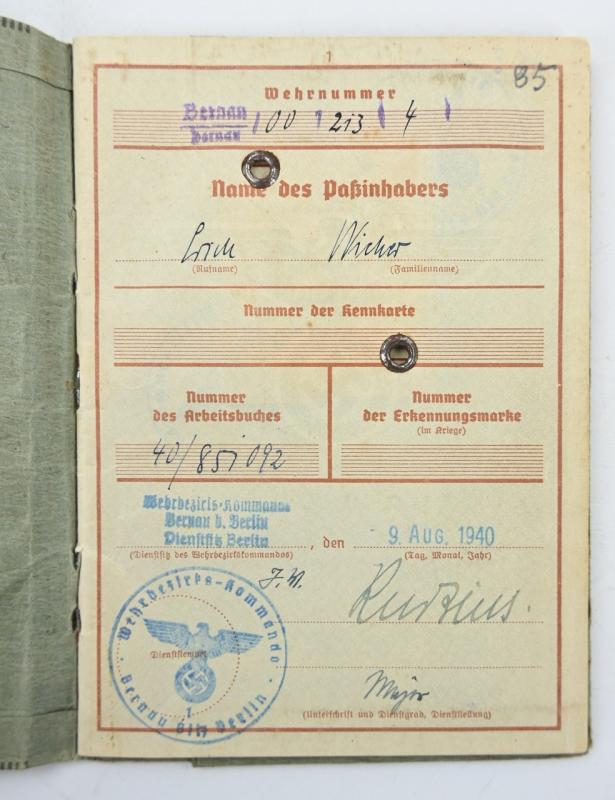 1
85
Wehrnummer
Bernau
Bernau
00 213 4
Name des Paßinhabers
Erich
(Rufname) (Familienname)
Nummer der Kennkarte
Nummer
des Arbeitsbuches
Nummer
der Erkennungsmarke
(im Kriege)
40/851092
Wehrbezirks-Kommando
Bernau b. Berlin
Dienstsitz Berlin
, den 9. Aug. 1940
(Dienstsitz des Wehrbezirkskommandos) (Tag, Monat, Jahr)
J.V.
Wehrbezirks-Kommando
Dienststempel
1
Bernau Sitz Berlin
Major
(Unterschrift und Dienstgrad, Dienststellung)